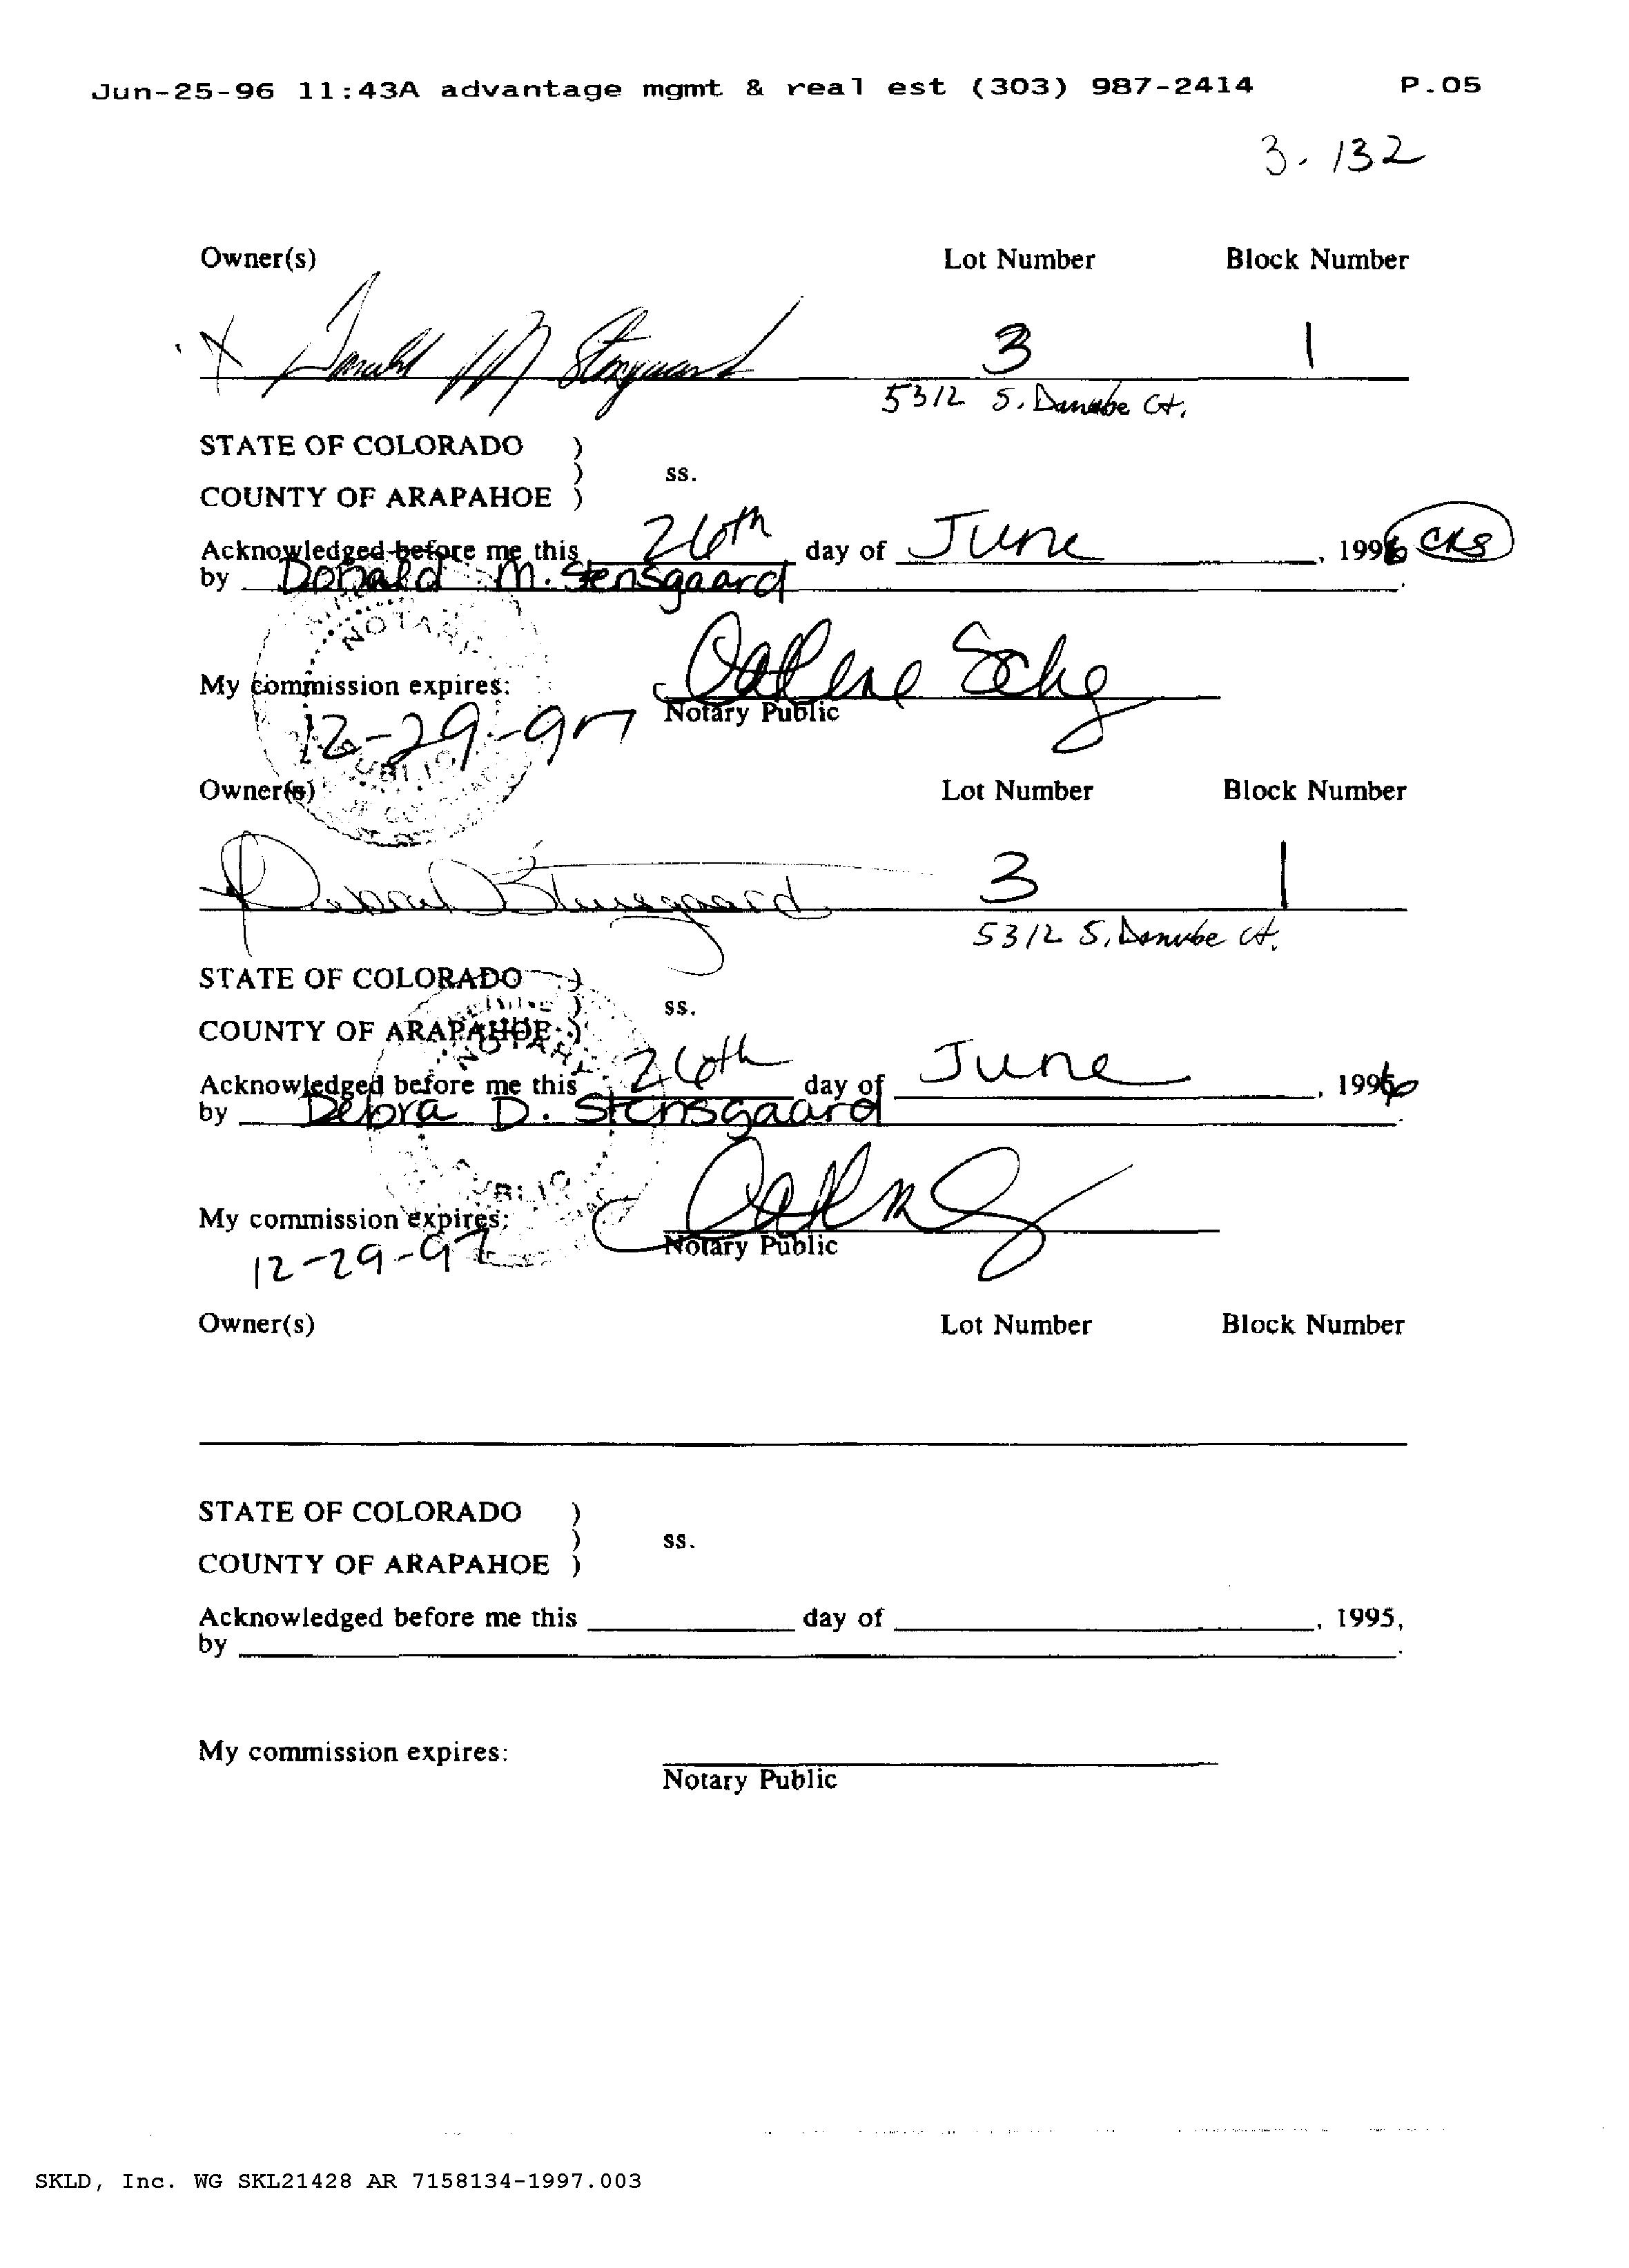 Jun-25-96 11:43A advantage mgmt & real est (303) 987-2414 P.05
3. 132
Owner(s) Lot Number Block Number
X Donald M Stensgaard 3 1
5312 S. Danube Ct.
STATE OF COLORADO )
) ss.
COUNTY OF ARAPAHOE )
Acknowledged before me this 26th day of June, 1996 CKS
by Donald M. Stensgaard.
NOTARY
My commission expires:
Notary Public
12-29-97
PUBLIC
Owner(s) Lot Number Block Number
Debra D Stensgaard 3 1
5312 S. Danube Ct.
STATE OF COLORADO )
) ss.
COUNTY OF ARAPAHOE )
NOTARY
Acknowledged before me this 26th day of June, 1996
by Debra D. Stensgaard.
PUBLIC
My commission expires:
Notary Public
12-29-97
Owner(s) Lot Number Block Number
STATE OF COLORADO )
) ss.
COUNTY OF ARAPAHOE )
Acknowledged before me this ____ day of ____, 1995,
by ____.
My commission expires:
Notary Public
SKLD, Inc. WG SKL21428 AR 7158134-1997.003